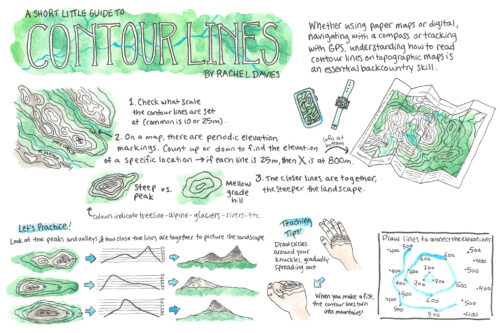 A SHORT LITTLE GUIDE TO
CONTOUR LINES
BY RACHEL DAVIES
Whether using paper maps or digital,
navigating with a compass or tracking
with GPS, understanding how to read
contour lines on topographic maps is
an essential backcountry skill.
1. Check what scale
the contour lines are set
at (common is 10 or 25m).
2. On a map, there are periodic elevation
markings. Count up or down to find the elevation
of a specific location → if each line is 25m, then X is at 800m.
info at
bottom
Steep
peak
vs.
Mellow
grade
hill
3. The closer lines are together,
the steeper the landscape.
colours indicate treeline - alpine - glaciers - rivers - etc.
Let's Practice!
Look at the peaks and valleys & how close the lines are together to picture the landscape.
Teaching
Tips!
Draw circles
around your
knuckles, gradually
spreading out
When you make a fist,
the contour lines turn
into mountains!
Draw lines to connect the elevations: